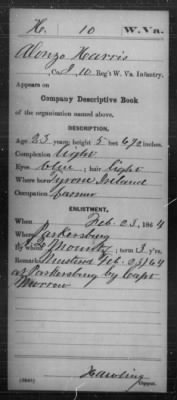 H. 10 W. Va.
Alonzo Harris
Co. I, 10 Reg't W. Va. Infantry.
Appears on
Company Descriptive Book
of the organization named above.
DESCRIPTION.
Age 23 years; height 5 feet 6 1/2 inches.
Complexion Light
Eyes blue; hair Light
Where born Tyrone Ireland
Occupation farmer
ENLISTMENT.
When Feb. 23, 1864
Where Parkersburg
By whom Mountz; term 3 y'rs.
Remarks: Mustered Feb. 23, 64
at Parkersburg by Capt
Morrow
Copyist.